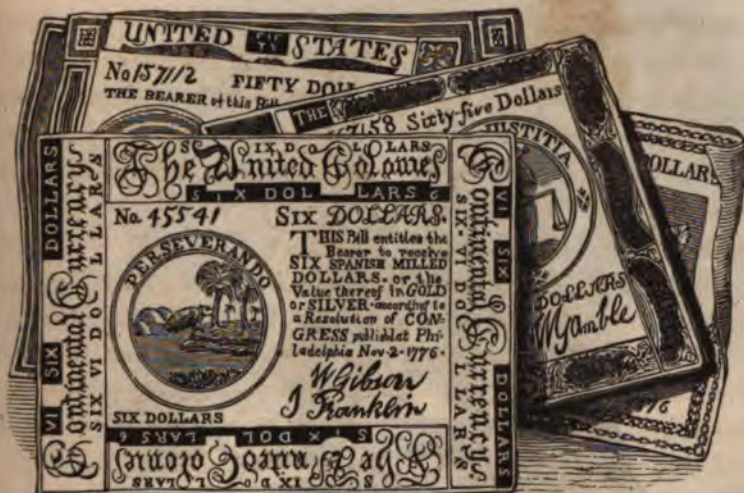 UNITED STATES
No 157112 FIFTY DOLL
THE BEARER of this Bill
THE
7158 Sixty-five Dollars
JUSTITIA
DOLLARS
W Gamble
DOLLARS
76
S IX D O L LARS
The United Colonies
S I X DOL LARS 6
No. 45541 SIX DOLLARS.
PERSEVERANDO
THIS Bill entitles the
Bearer to receive
SIX SPANISH MILLED
DOLLARS, or the
Value thereof in GOLD
or SILVER according to
a Resolution of CON-
GRESS publishd at Phi-
ladelphia Nov. 2. 1776.
W Gibson
J Franklin
SIX DOLLARS
S I X DOL LARS 6
The United Colonies
S IX D L LARS
VI SIX DOLLARS
Continental Currency
SIX VI DO LLARS
VI SIX DOLLARS
Continental Currency
SIX VI DO LLARS